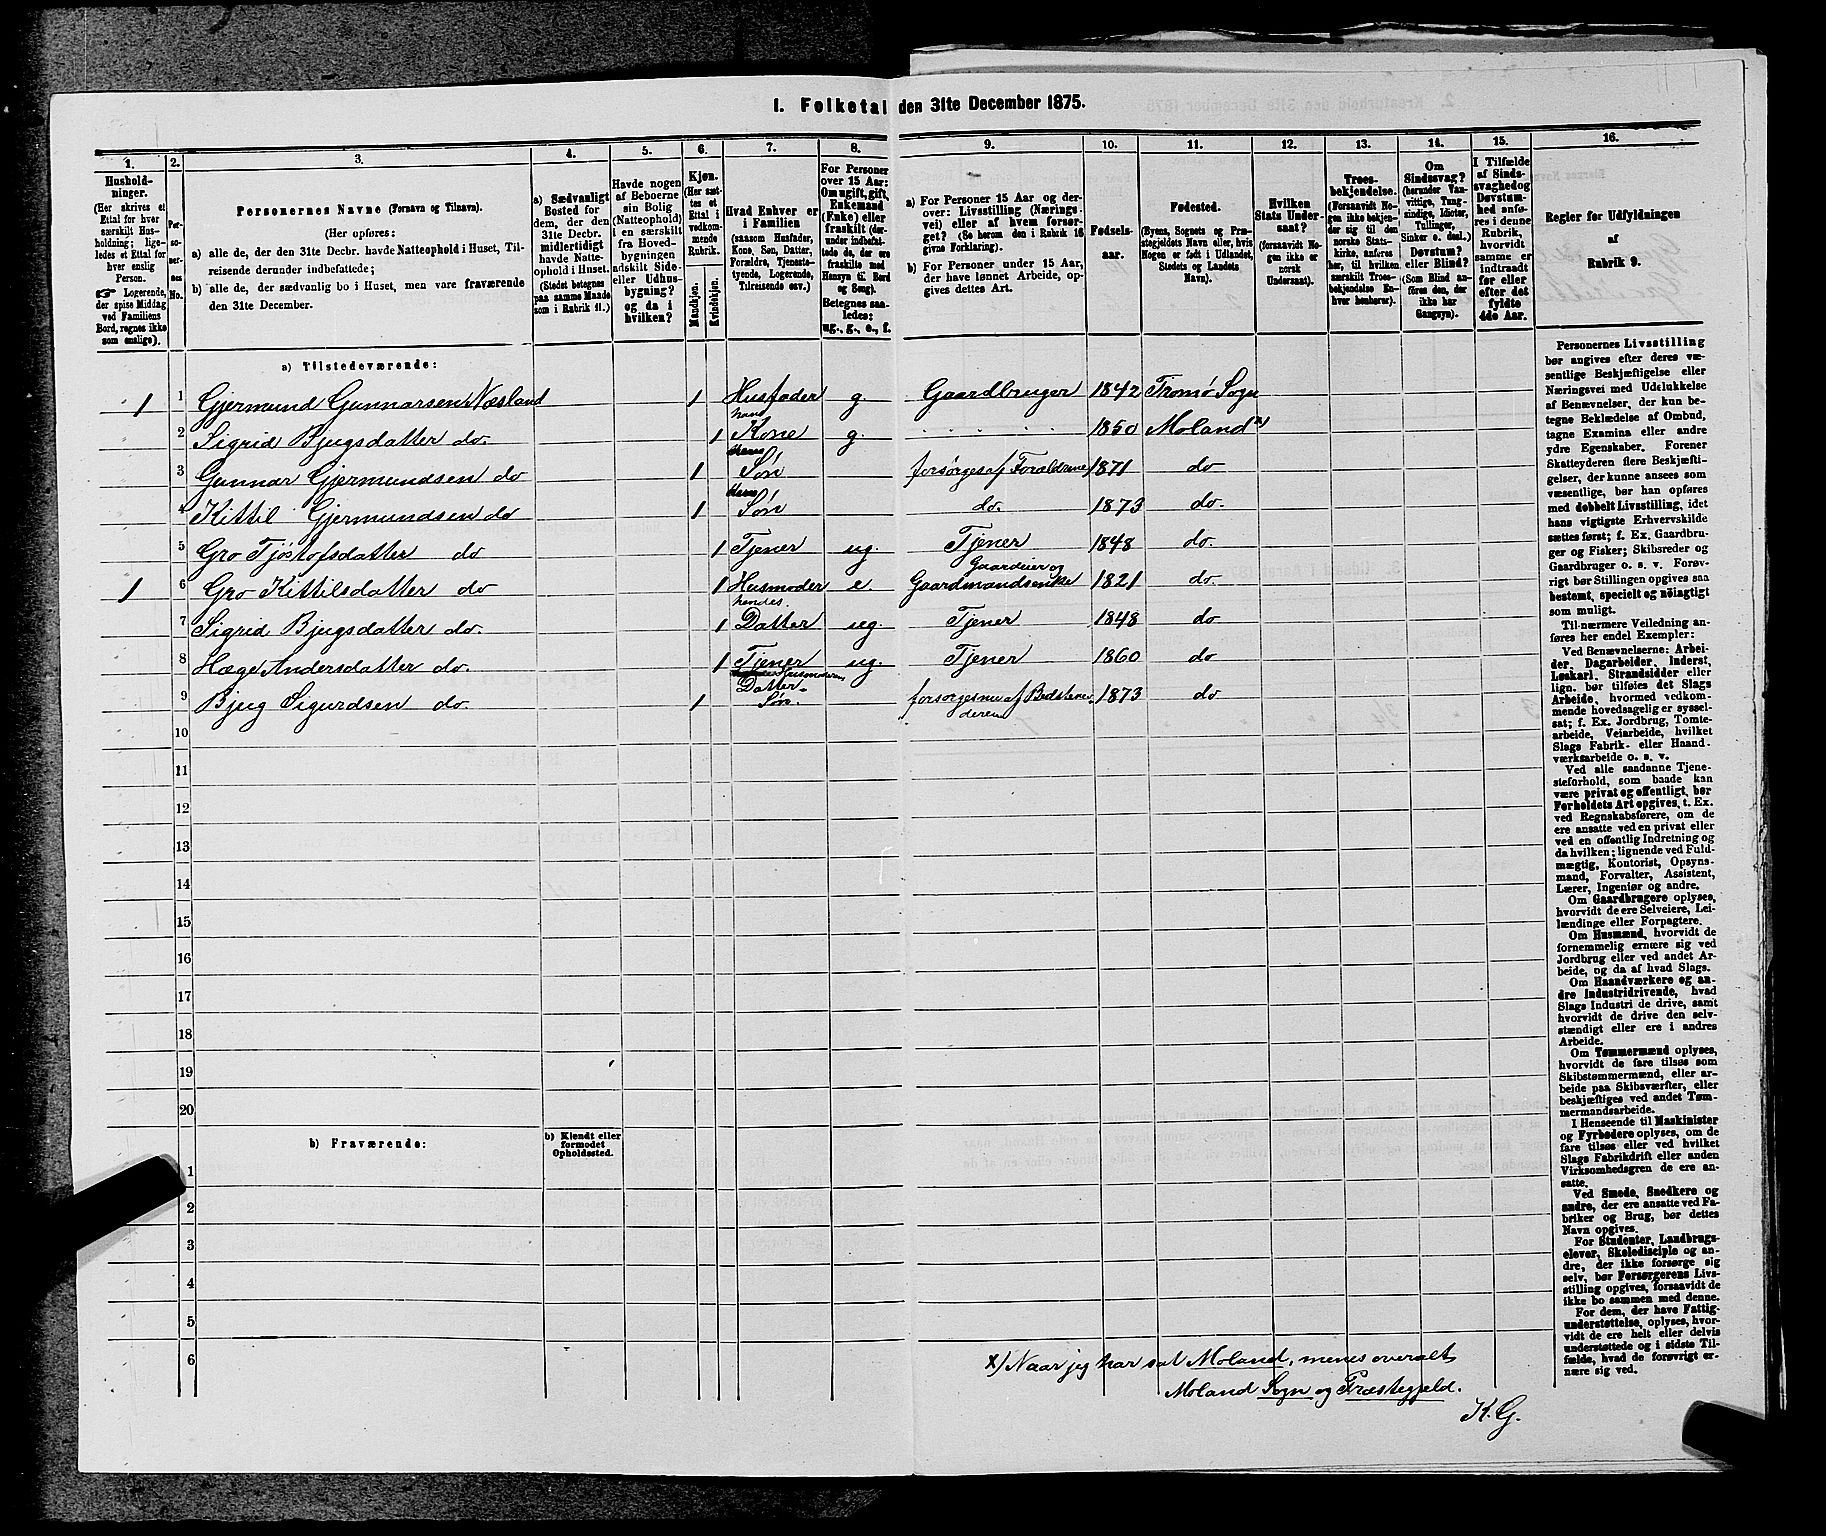 I. Folketal den 31te December 1875.
1. 2. 3. 4. 5. 6. 7. 8. 9. 10. 11. 12. 13. 14. 15. 16.
Hushold-
ninger.
(Her skrives et
Ettal for hver
særskilt Hus-
holdning; lige-
ledes et Ettal for
hver enslig
Person.
☞ Logerende,
der spise Middag
ved Familiens
Bord, regnes ikke
som enslige).
Per-
so-
ner-
nes
No.
Personernes Navne (Fornavn og Tilnavn).
(Her opføres:
a) alle de, der den 31te Decbr. havde Natteophold i Huset, Til-
reisende derunder indbefattede;
b) alle de, der sædvanlig bo i Huset, men vare fraværende
den 31te December.
a) Sædvanligt
Bosted for
dem, der den
31te Decbr.
midlertidigt
havde Natte-
ophold i Huset.
(Stedet betegnes
paa samme Maade
som i Rubrik 11.)
Havde nogen
af Beboerne
sin Bolig
(Natteophold)
i en særskilt
fra Hoved-
bygningen
adskilt Side-
eller Udhus-
bygning?
og da i
hvilken?
Kjøn.
(Her sæt-
tes et
Ettal i
vedkom-
mende
Rubrik.
Mandkjøn.
Kvindekjøn.
Hvad Enhver er
i Familien
(saasom Husfader,
Kone, Søn, Datter,
Forældre, Tjeneste-
tyende, Logerende,
Tilreisende osv.)
For Personer
over 15 Aar:
Om ugift, gift,
Enkemand
(Enke) eller
fraskilt (der-
under indbefat-
tede de, der ere
fraskilte med
Hensyn til Bord
og Seng).
Betegnes saa-
ledes:
ug., g., e., f.
a) For Personer 15 Aar og der-
over: Livsstilling (Nærings-
vei) eller af hvem forsør-
get? (Se herom den i Rubrik 16
givne Forklaring).
b) For Personer under 15 Aar,
der have lønnet Arbeide, op-
gives dettes Art.
Fødsels-
aar.
Fødested.
(Byens, Sognets og Præ-
stegjeldets Navn eller, hvis
Nogen er født i Udlandet,
Stedets og Landets
Navn).
Hvilken
Stats Under-
saat?
(forsaavidt No-
gen ikke er
norsk
Undersaat).
Troes-
bekjendelse.
(Forsaavidt No-
gen ikke bekjen-
der sig til den
norske Stats-
kirke, anføres
her, til hvilken
særskilt Troes-
bekjendelse En-
hver henhører).
Om
Sindssvag?
(herunder Van-
vittige, Tung-
sindige, Idioter,
Tullinger,
Sinker o. desl.)
Døvstum?
eller Blind?
(Som Blind an-
føres den, der
ikke har
Gangsyn).
I Tilfælde
af Sinds-
svaghed og
Døvstum-
hed anfø-
res i denne
Rubrik,
hvorvidt
samme er
indtraadt
før eller
efter det
fyldte
4de Aar.
Regler for Udfyldningen
af
Rubrik 9.
a) Tilstedeværende:
1 1 Gjermund Gunnarsen Næsland 1 Husfader g. Gaardbruger 1842 Tromø Sogn
2 Sigrid Bjugsdatter do. 1 hans Kone g. 1850 Moland x)
3 Gunnar Gjermundsen do 1 Hans Søn forsørges af Forældrene 1871 do
4 Kittil Gjermundsen do 1 Hans Søn do. 1873 do.
5 Gro Tjøstofsdatter do 1 Tjener ug. Tjener 1848 do.
1 6 Gro Kittilsdatter do 1 Husmoder e. Gaardeier og Gaardmandsenke 1821 do.
7 Sigrid Bjugsdatter do. 1 hendes Datter ug. Tjener 1848 do
8 Hæge Andersdatter do. 1 Tjener ug. Tjener 1860 do
9 Bjug Sigurdsen do. 1 Husmoderens Datter- Søn. forsørges nu af Bedstemoderen 1873 do
10
11
12
13
14
15
16
17
18
19
20
b) Fraværende:
b) Kjendt eller
formodet
Opholdssted.
1
2
3
4
5
6
x) Naar jeg har sat Moland, menes overalt
Moland Sogn og Præstegjeld.
K. G.
Personernes Livsstilling
bør angives efter deres væ-
sentlige Beskjæftigelse eller
Næringsvei med Udelukkelse
af Benævnelser, der kun be-
tegne Beklædelse af Ombud,
tagne Examina eller andre
ydre Egenskaber. Forener
Skatteyderen flere Beskjæfti-
gelser, der kunne ansees som
væsentlige, bør han opføres
med dobbelt Livsstilling, idet
hans vigtigste Erhvervskilde
sættes først; f. Ex. Gaardbru-
ger og Fisker; Skibsreder og
Gaardbruger o. s. v. Forøv-
rigt bør Stillingen opgives saa
bestemt, specielt og nøiagtigt
som muligt.
Til nærmere Veiledning an-
føres her endel Exempler:
Ved Benævnelserne: Arbei-
der, Dagarbeider, Inderst,
Løskarl, Strandsidder eller
lign. bør tilføies det Slags
Arbeide, hvormed vedkom-
mende hovedsagelig er syssel-
sat; f. Ex. Jordbrug, Tomte-
arbeide, Veiarbeide, hvilket
Slags Fabrik- eller Haand-
værksarbeide o. s. v.
Ved alle saadanne Tjene-
steforhold, som baade kan
være privat og offentligt, bør
Forholdets Art opgives, t. Ex.
ved Regnskabsførere, om de
ere ansatte ved en privat eller
ved en offentlig Indretning og
da hvilken; lignende ved Fuld-
mægtig, Kontorist, Opsyns-
mand, Forvalter, Assistent,
Lærer, Ingeniør og andre.
Om Gaardbrugere oplyses,
hvorvidt de ere Selveiere, Lei-
lændinge eller Forpagtere.
Om Husmænd, hvorvidt de
fornemmelig ernære sig ved
Jordbrug eller ved andet Ar-
beide, og da af hvad Slags.
Om Haandværkere og an-
dre Industridrivende, hvad
Slags Industri de drive, samt
hvorvidt de drive den selv-
stændigt eller ere i andres
Arbeide.
Om Tømmermænd oplyses,
hvorvidt de fare tilsøs som
Skibstømmermænd, eller ar-
beide paa Skibsværfter, eller
beskjæftiges ved andet Tøm-
mermandsarbeide.
I Henseende til Maskinister
og Fyrbødere oplyses, om de
fare tilsøs eller ved hvilket
Slags Fabrikdrift eller anden
Virksomhedsgren de ere an-
satte.
Ved Smede, Snedkere og
andre, der ere ansatte ved Fa-
briker og Brug, bør dettes
Navn opgives.
For Studenter, Landbrugs-
elever, Skoledisciple og an-
dre, der ikke forsørge sig
selv, bør Forsørgerens Livs-
stilling opgives, forsaavidt de
ikke bo sammen med denne.
For dem, der have Fattig-
understøttelse, oplyses, hvor-
vidt de ere helt eller delvis
understøttede og i sidste Til-
fælde, hvad de forøvrigt er-
nære sig ved.